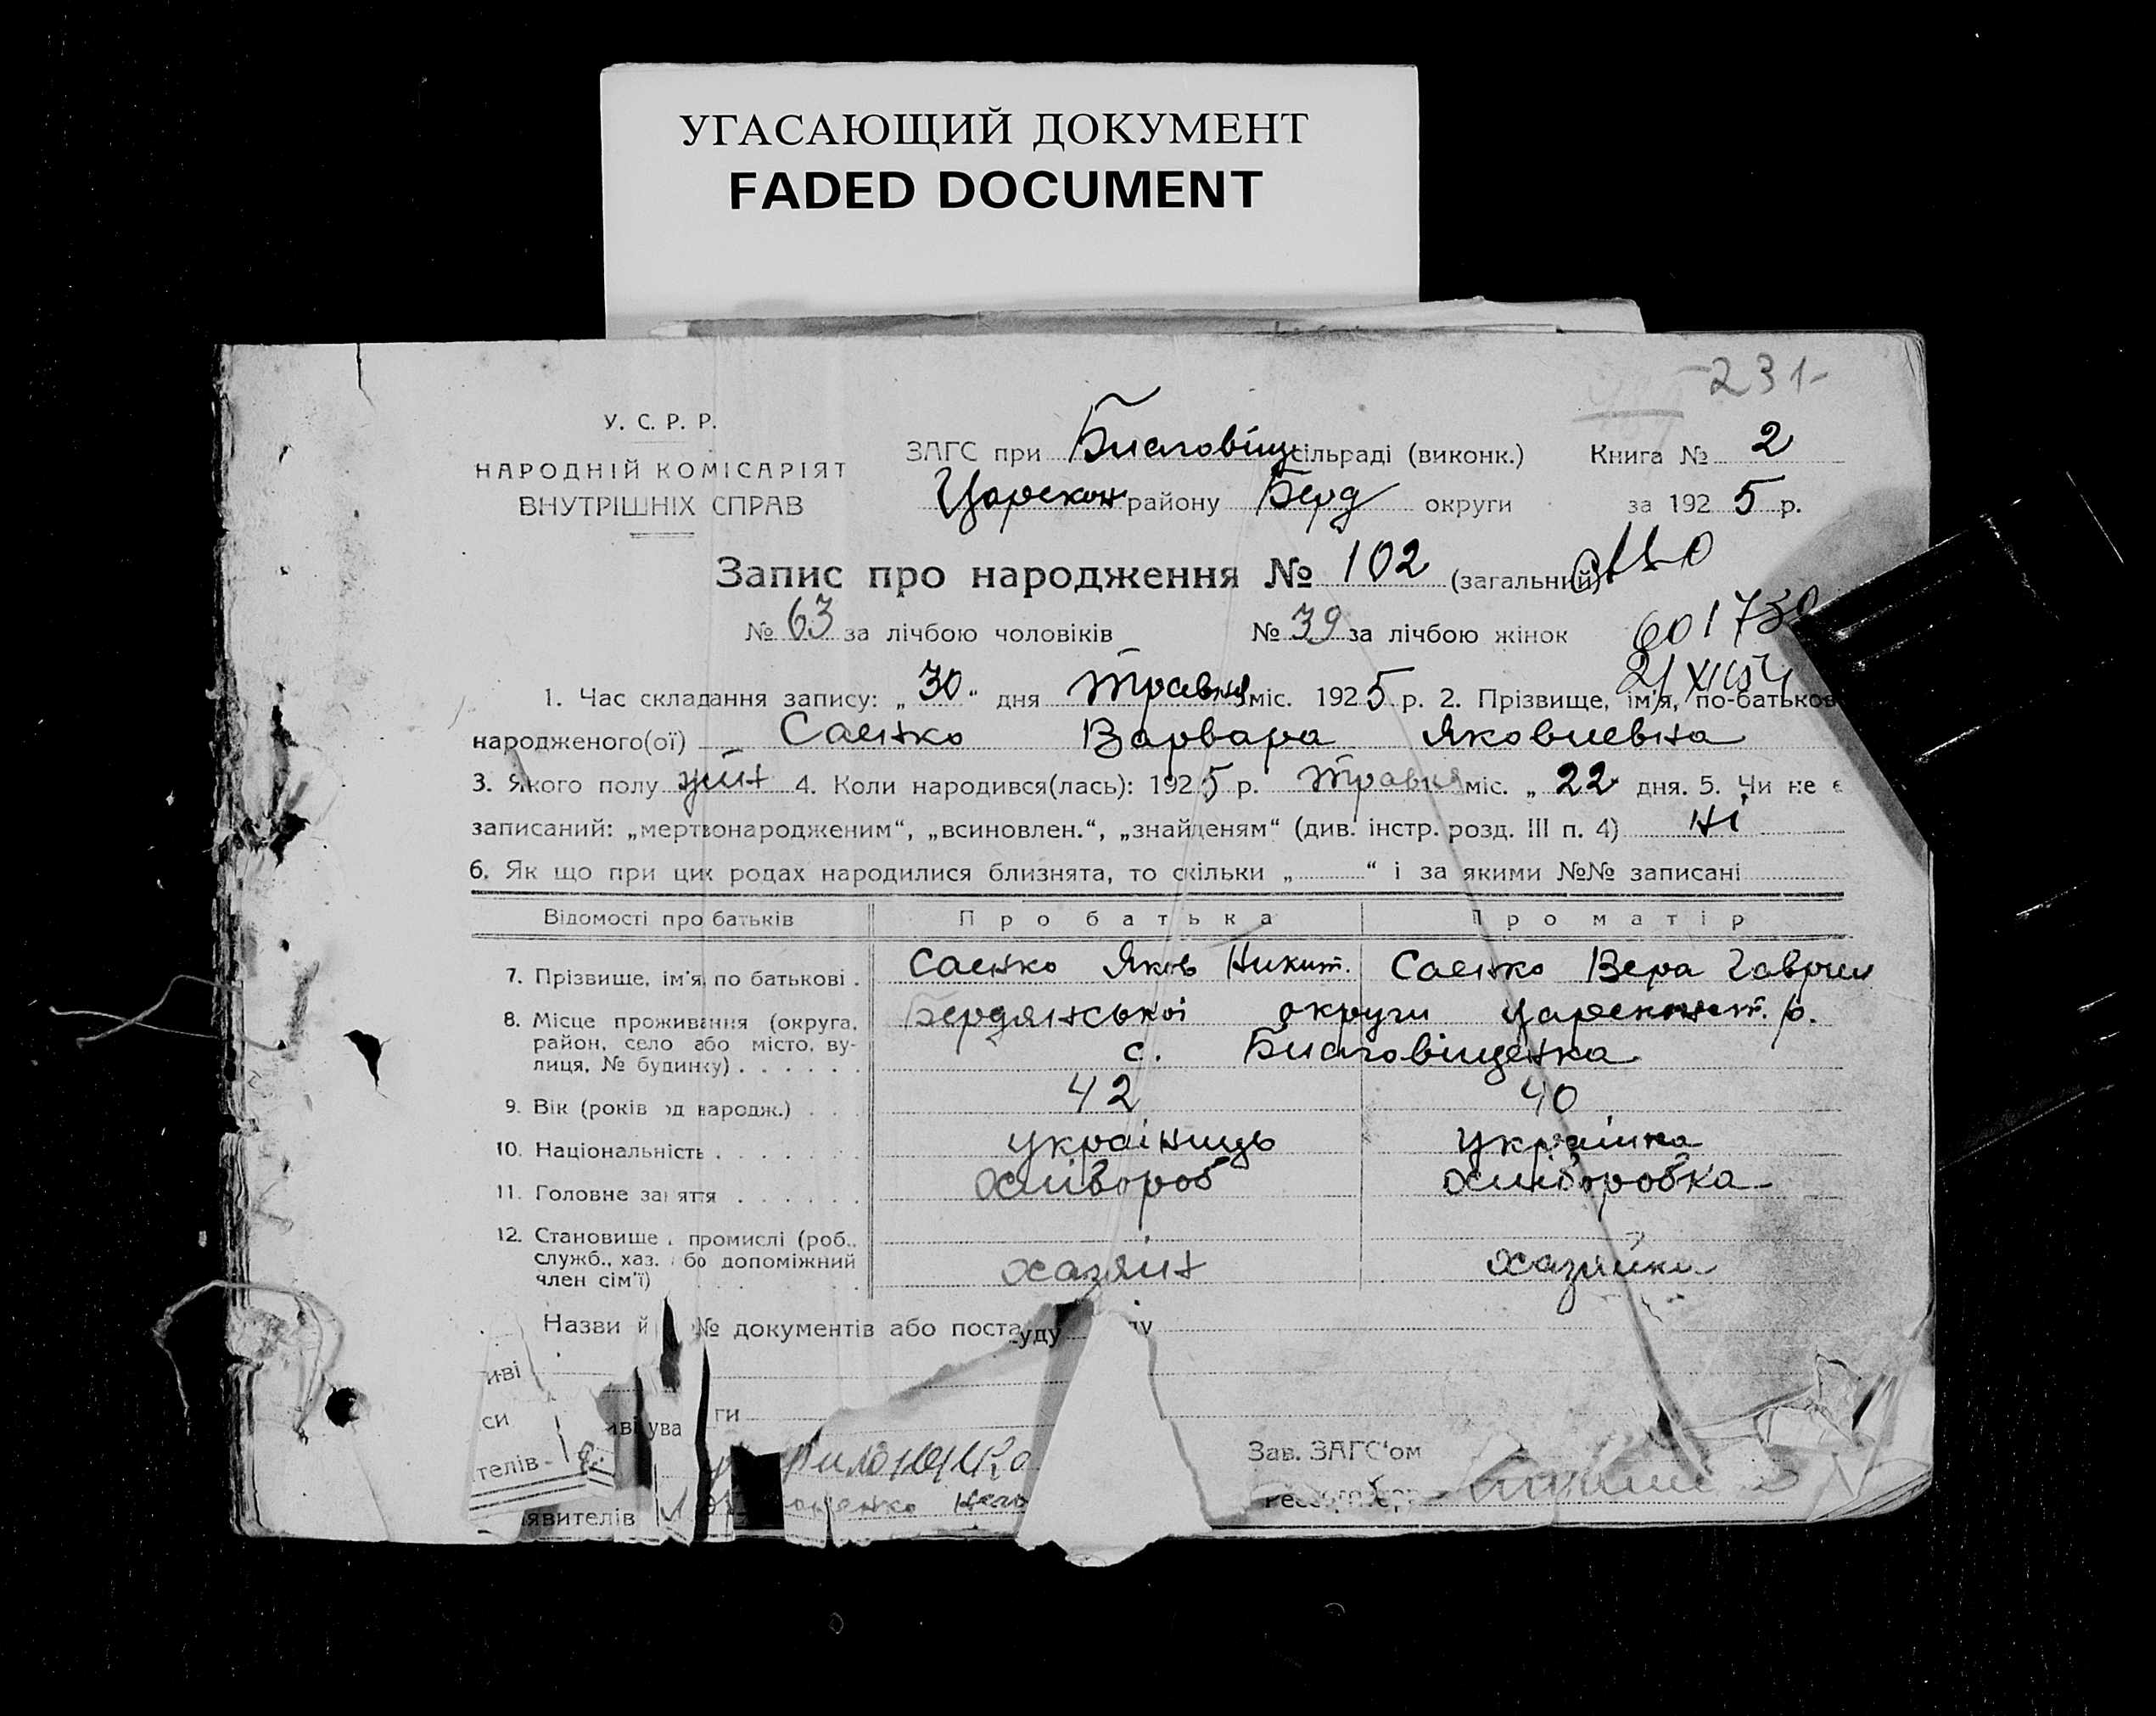 УГАСАЮЩИЙ ДОКУМЕНТ
FADED DOCUMENT
231-
У. С. Р. Р.
НАРОДНІЙ КОМІСАРІЯТ
ВНУТРІШНІХ СПРАВ
ЗАГС при Благовіщ сільраді (виконк.) Книга № 2
Царекон району Берд округи за 1925 р.
Запис про народження № 102 (загальний)
№ 63 за лічбою чоловіків № 39 за лічбою жінок
601730
1. Час складання запису: „30" дня травня міс. 1925 р. 2. Прізвище, ім'я, по-батькові
народженого(ої) Саенко Варвара Яковлевна
3. Якого полу жін 4. Коли народився(лась): 1925 р. травня міс. „22 дня. 5. Чи не є
записаний: „мертвонародженим“, „всиновлен.“, „знайденям“ (див. інстр. розд. III п. 4) ні
6. Як що при цих родах народилися близнята, то скільки „ “ і за якими №№ записані
Відомості про батьків Про батька Про матір
7. Прізвище, ім'я, по батькові . Саенко Яков Никит. Саенко Вера Гаврил
8. Місце проживання (округа, район, село або місто, вулиця, № будинку) Бердянської округи Царекон­ст. р.
с. Благовіщенка
9. Вік (років од народж.) 42 40
10. Національність українець українка
11. Головне заняття хлібороб хлібробка
12. Становище в промислі (роб., служб., хаз. або допоміжний член сім'ї) хазяїн хазяйка
Назви й № документів або поста
уду
иві
си
ува ги
телів
Зав. ЗАГС'ом
явителів